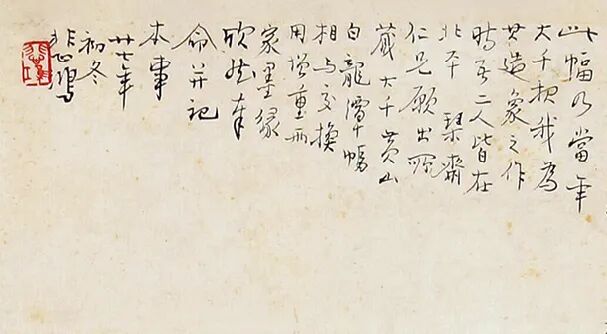 此幅乃當年
大千我為
其造象之作
時吾二人皆在
北平 琹齋
仁兄願出所
藏大千黃山
白龍潭中幅
相與交換
用增重兩
家墨緣
欣然奉
命并記
本事
廿七年
初冬
悲鴻